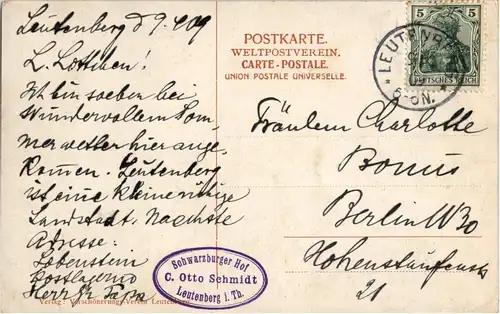 Leutenberg d 9.4 09
L. Lottchen!
Ich bin soeben bei
wundervollem Som
merwetter hier ange
kommen. Leutenberg
ist eine kleine ruhige
Landstadt. Naechste
Adresse:
Lobenstein
Postlagernd
Herr
POSTKARTE.
WELTPOSTVEREIN.
CARTE - POSTALE.
UNION POSTALE UNIVERSELLE.
5 5
DEUTSCHES REICH
LEUTENBERG
5-6N.
Fräulein Charlotte
Bonus
Berlin W 30
Hohenstaufenstr
21
Schwarzburger Hof
C. Otto Schmidt
Leutenberg i. Th.
Verlag: Verschönerungs-Verein Leutenberg